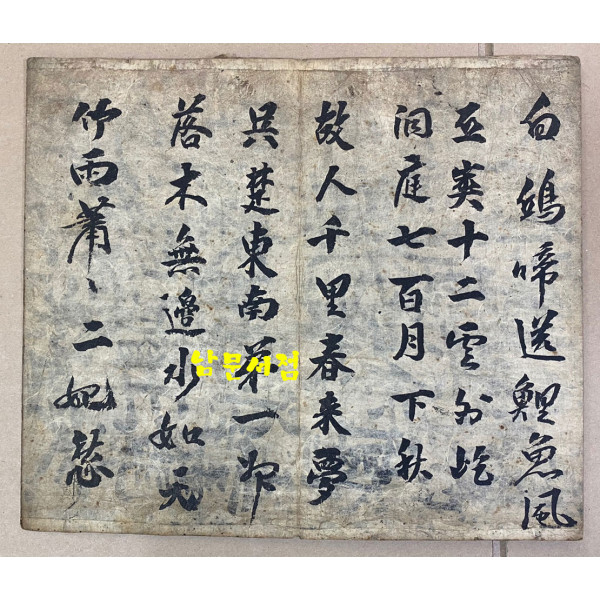 白啼送鯉魚風
十二雲外屹
洞庭七百月下秋
故人千里春来夢
吳楚東南第一
落木無邊水如天
竹雨蕭〻二妃
남문서점